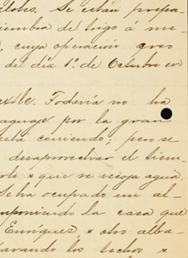 Se están prepa-
siembra de trigo á me-
, cuya operación
del día 1º. de Octubre en
Todavía no ha
por la gran
está corriendo; pero se
desaprovechar el tiem-
que se recoja agua.
Se ha ocupado un al-
componiendo la casa que
Enriquez, otro alba-
los techos